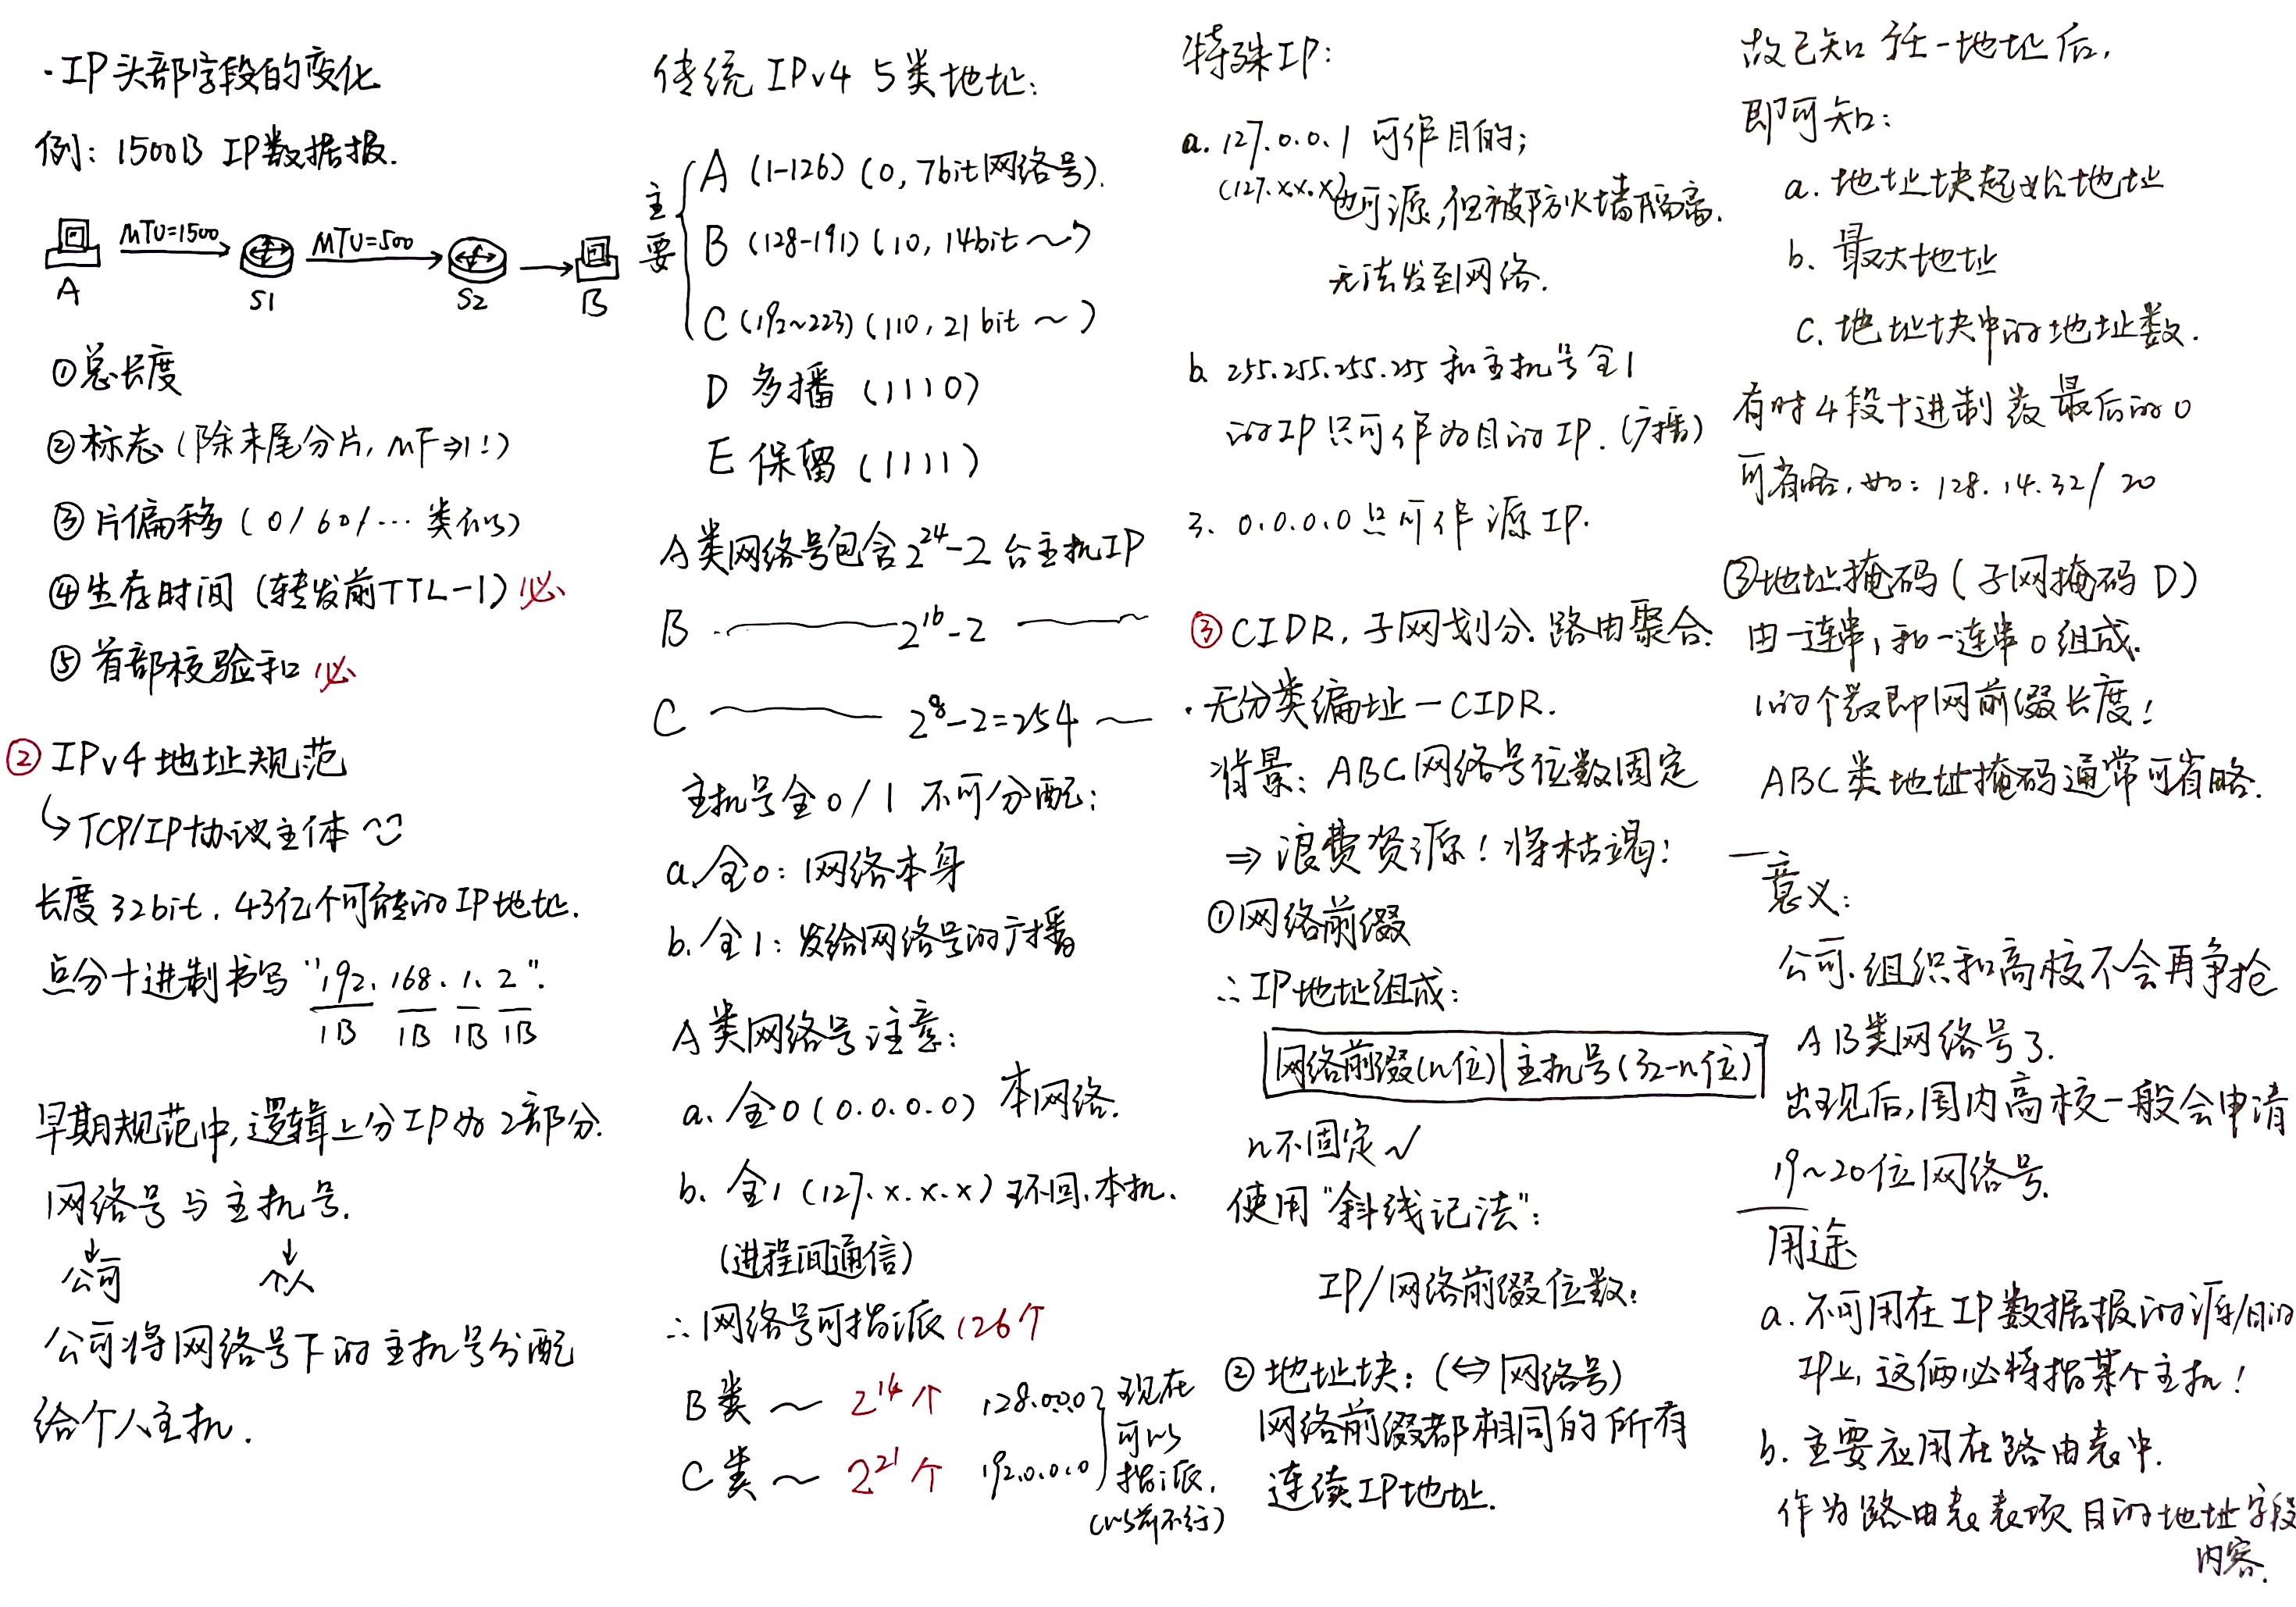 ·IP头部字段的变化
例：1500B IP数据报.
MTU=1500 MTU=500
A S1 S2 B
①总长度
②标志（除末尾分片，MF⇒1！）
③片偏移（0/60/… 类似）
④生存时间（转发前TTL-1）必
⑤首部校验和 必
② IPv4地址规范
↳TCP/IP协议主体
长度32bit，43亿个可能的IP地址.
点分十进制书写 "192.168.1.2".
1B 1B 1B 1B
早期规范中，逻辑上分IP为2部分.
网络号与主机号.
↓ ↓
公司 个人
公司将网络号下的主机号分配
给个人主机.
传统 IPv4 5类地址：
主要
A（1-126）（0，7bit网络号）.
B（128-191）（10，14bit ～）
C（192~223）（110，21bit ～）
D 多播（1110）
E 保留（1111）
A类网络号包含2²⁴-2台主机IP
B —— 2¹⁶-2 ——
C —— 2⁸-2=254 —
主机号全0/1 不可分配：
a.全0：网络本身
b.全1：发给网络号的广播
A类网络号注意：
a. 全0（0.0.0.0）本网络.
b. 全1（127.x.x.x）环回，本机.
（进程间通信）
∴网络号可指派126个
B类 ～ 2¹⁴个 128.0.0.0
C类 ～ 2²¹个 192.0.0.0
现在
可以
指派.
（以前不行）
特殊IP：
a. 127.0.0.1 可作目的；
（127.x.x.x）也可源，但被防火墙隔离.
无法发到网络.
b. 255.255.255.255 和主机号全1
的IP只可作为目的IP.（广播）
3. 0.0.0.0 只可作源IP.
③ CIDR，子网划分.路由聚合.
·无分类编址—CIDR.
背景：ABC网络号位数固定
⇒ 浪费资源！将枯竭！
①网络前缀
∴IP地址组成：
网络前缀(n位)|主机号(32-n位)
n不固定√
使用"斜线记法"：
IP/网络前缀位数.
② 地址块：（⇔网络号）
网络前缀都相同的所有
连续IP地址.
故已知任一地址后，
即可知：
a. 地址块起始地址
b. 最大地址
c. 地址块中的地址数.
有时4段十进制数最后的0
可省略，如：128.14.32/20
③地址掩码（子网掩码D）
由一连串1和一连串0组成.
1的个数即网前缀长度！
ABC类地址掩码通常可省略.
意义：
公司.组织和高校不会再争抢
AB类网络号了.
出现后，国内高校一般会申请
19~20位网络号.
用途
a. 不可用在IP数据报的源/目的
IP上，这俩必特指某个主机！
b. 主要应用在路由表中.
作为路由表表项目的地址字段
内容.